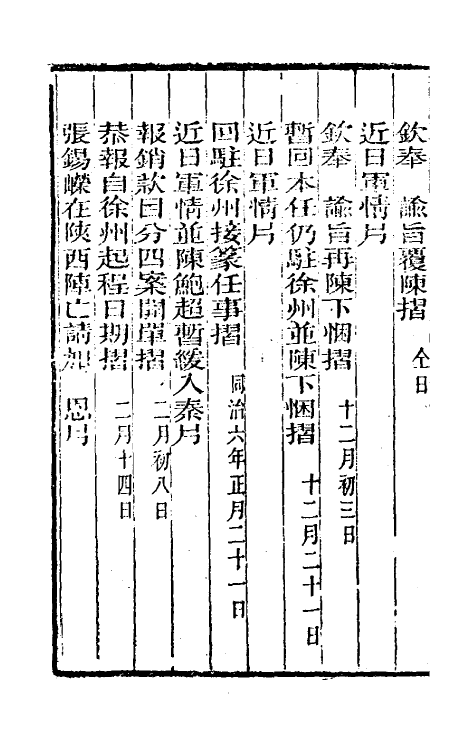 欽奉　諭旨覆陳摺　仝日
近日軍情片
欽奉　諭旨再陳下悃摺　十二月初三日
暫回本任仍駐徐州並陳下悃摺　十二月二十一日
近日軍情片
回駐徐州接篆任事摺　同治六年正月二十一日
近日軍情並陳鮑超暫緩入秦片
報銷款目分四案開單摺　二月初八日
恭報自徐州起程日期摺　二月十四日
張錫嶸在陝西陣亡請加　恩片